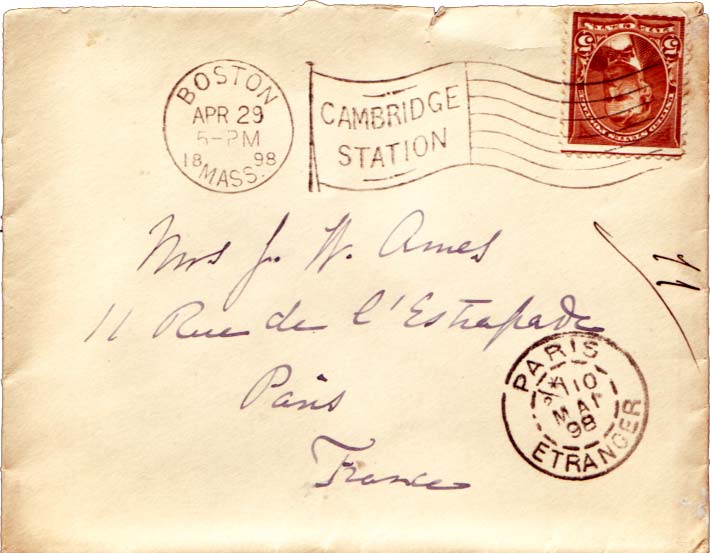 BOSTON
APR 29
5-PM
18 98
MASS.
CAMBRIDGE
STATION
5 5
Mrs J. W. Ames
11 Rue de l'Estrapade
Paris
France
11
PARIS
10
MAI
98
ETRANGER